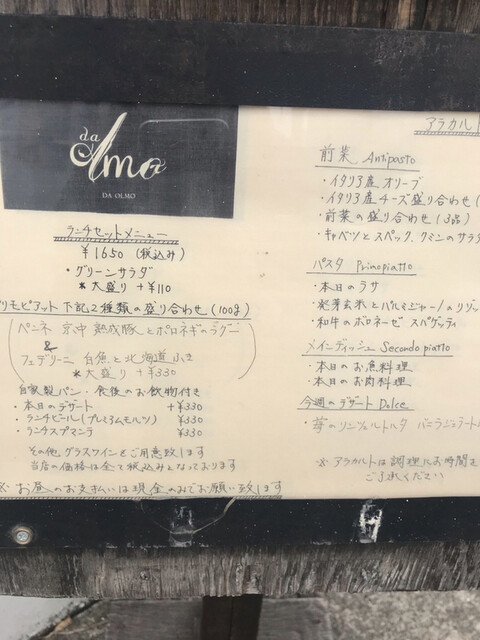 da olmo
DA OLMO
ランチセットメニュー
¥1650 (税込み)
・グリーンサラダ
* 大盛り +¥110
リモピアット 下記2種類の盛り合わせ (100g)
ペンネ 京中 熟成豚とポロネギのラグー
&
フェデリーニ 白魚と北海道ふき
*大盛り +¥330
自家製パン・食後のお飲物付き
・本日のデザート +¥330
・ランチビール(プレミアムモルツ) ¥330
・ランチスプマンテ ¥330
その他グラスワインもご用意致します
当店の価格は全て税込みとなっております
※ お昼のお支払いは現金のみでお願い致します
アラカルト
前菜 Antipasto
・イタリア産 オリーブ
・イタリア産チーズ盛り合わせ(
・前菜の盛り合わせ (3品)
・キャベツとスペック、クミンのサラダ
パスタ Primopiatto
・本日のラザ
・発芽玄米とパルミジャーノのリゾッ
・和牛のボロネーゼ スパゲッティ
メインディッシュ Secondo piatto
・本日のお魚料理
・本日のお肉料理
今週のデザート Dolce
・苺のリンツァルトルタ バニラジェラート
※ アラカルトは調理にお時間を
ご了承ください